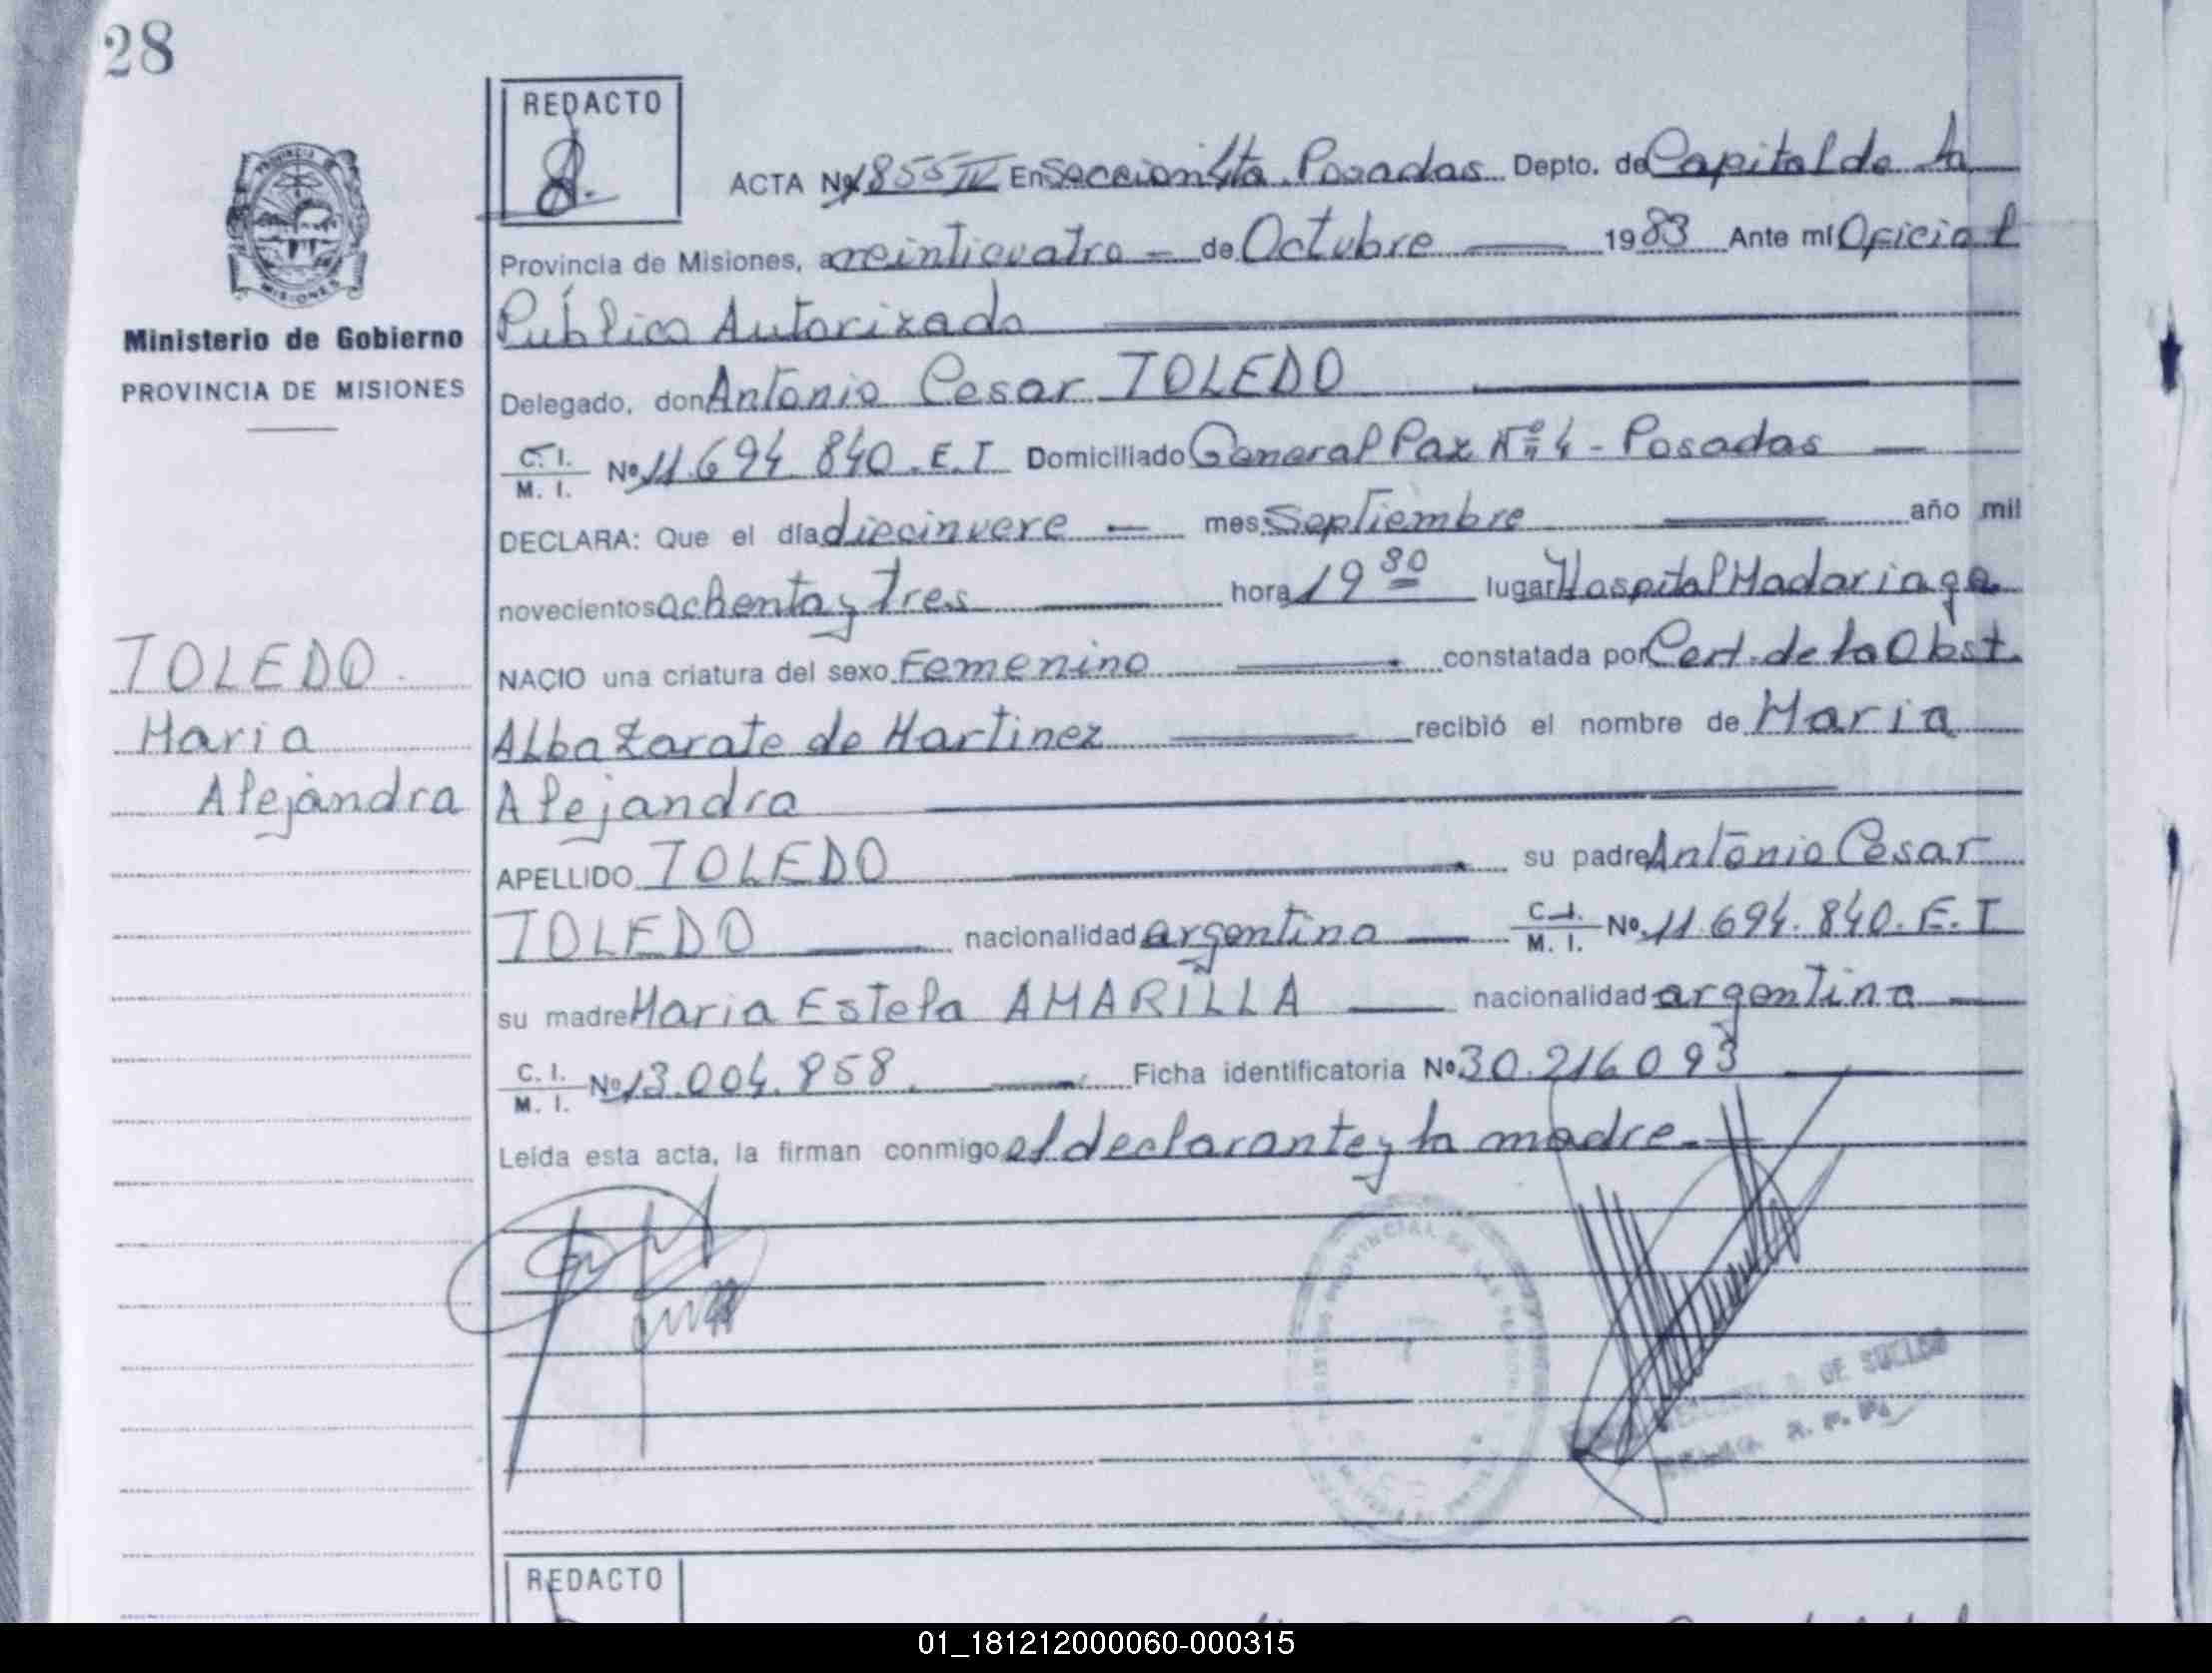 28
REDACTO
ACTA Nº 1855 IV En Sección 4ta. Posadas Depto. de Capital de la
PROVINCIA DE
MISIONES
Provincia de Misiones, a veinticuatro — de Octubre — 1983 Ante mí Oficial
Ministerio de Gobierno
Público Autorizado
PROVINCIA DE MISIONES
Delegado, don Antonio Cesar TOLEDO
C. I. / M. I. Nº 11.694.840.E.T Domiciliado General Paz Nº 4 - Posadas —
DECLARA: Que el día diecinueve — mes Septiembre — año mil
novecientos ochenta y tres — hora 19 30 lugar Hospital Madariaga
TOLEDO.
NACIO una criatura del sexo Femenino — constatada por Cert. de la Obst.
Maria
Alba Zarate de Martinez — recibió el nombre de Maria
Alejandra
Alejandra
APELLIDO TOLEDO — su padre Antonio Cesar
TOLEDO — nacionalidad argentino — C. I. / M. I. Nº 11.694.840.E.T
su madre Maria Estela AMARILLA — nacionalidad argentina —
C. I. / M. I. Nº 13.004.858. — Ficha identificatoria Nº 30.216093 —
Leída esta acta, la firman conmigo el declarante y la madre.—
DE SUCLDO
REDACTO
01_181212000060-000315